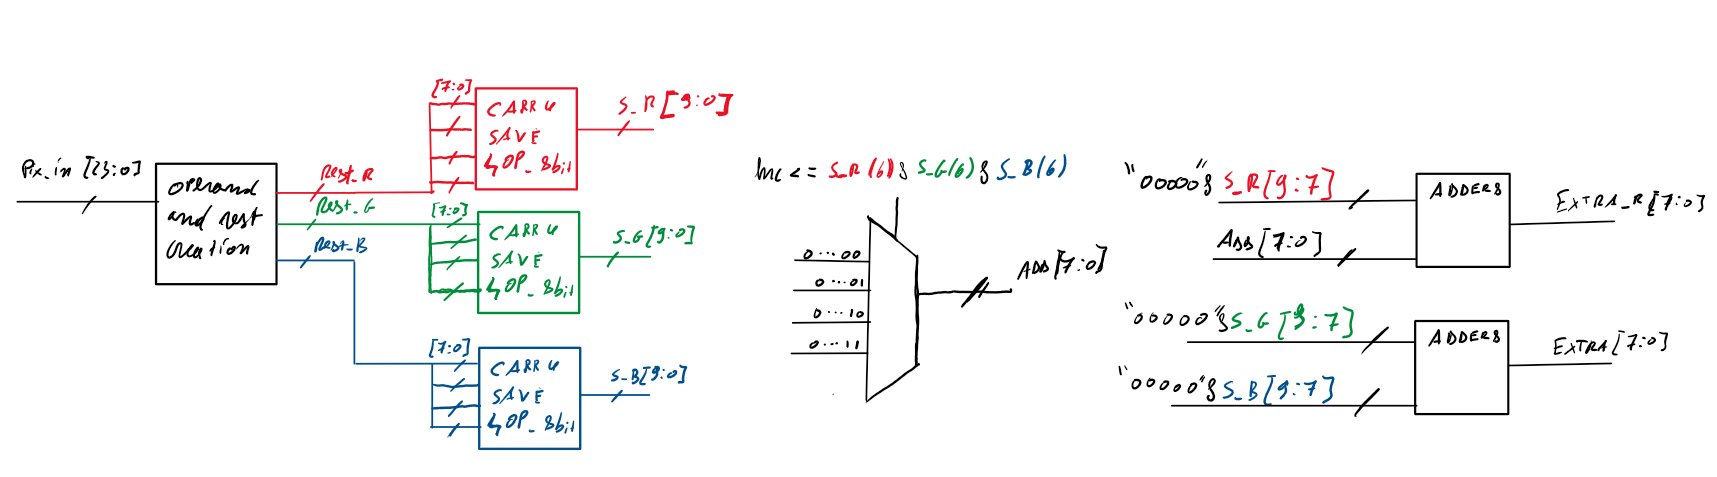 Pix_in [23:0]
operand
and rest
creation
Rest_R
Rest_G
Rest_B
[7:0]
CARRY
SAVE
4OP_8bit
S_R[9:0]
[7:0]
CARRY
SAVE
4OP_8bit
S_G[9:0]
[7:0]
CARRY
SAVE
4OP_8bit
S_B[9:0]
Inc <= S_R(6)& S_G(6)& S_B(6)
0...00
0...01
0...10
0...11
ADD[7:0]
"00000"& S_R[9:7]
ADD[7:0]
ADDER8
EXTRA_R[7:0]
"00000"& S_G[9:7]
"00000"& S_B[9:7]
ADDER8
EXTRA[7:0]